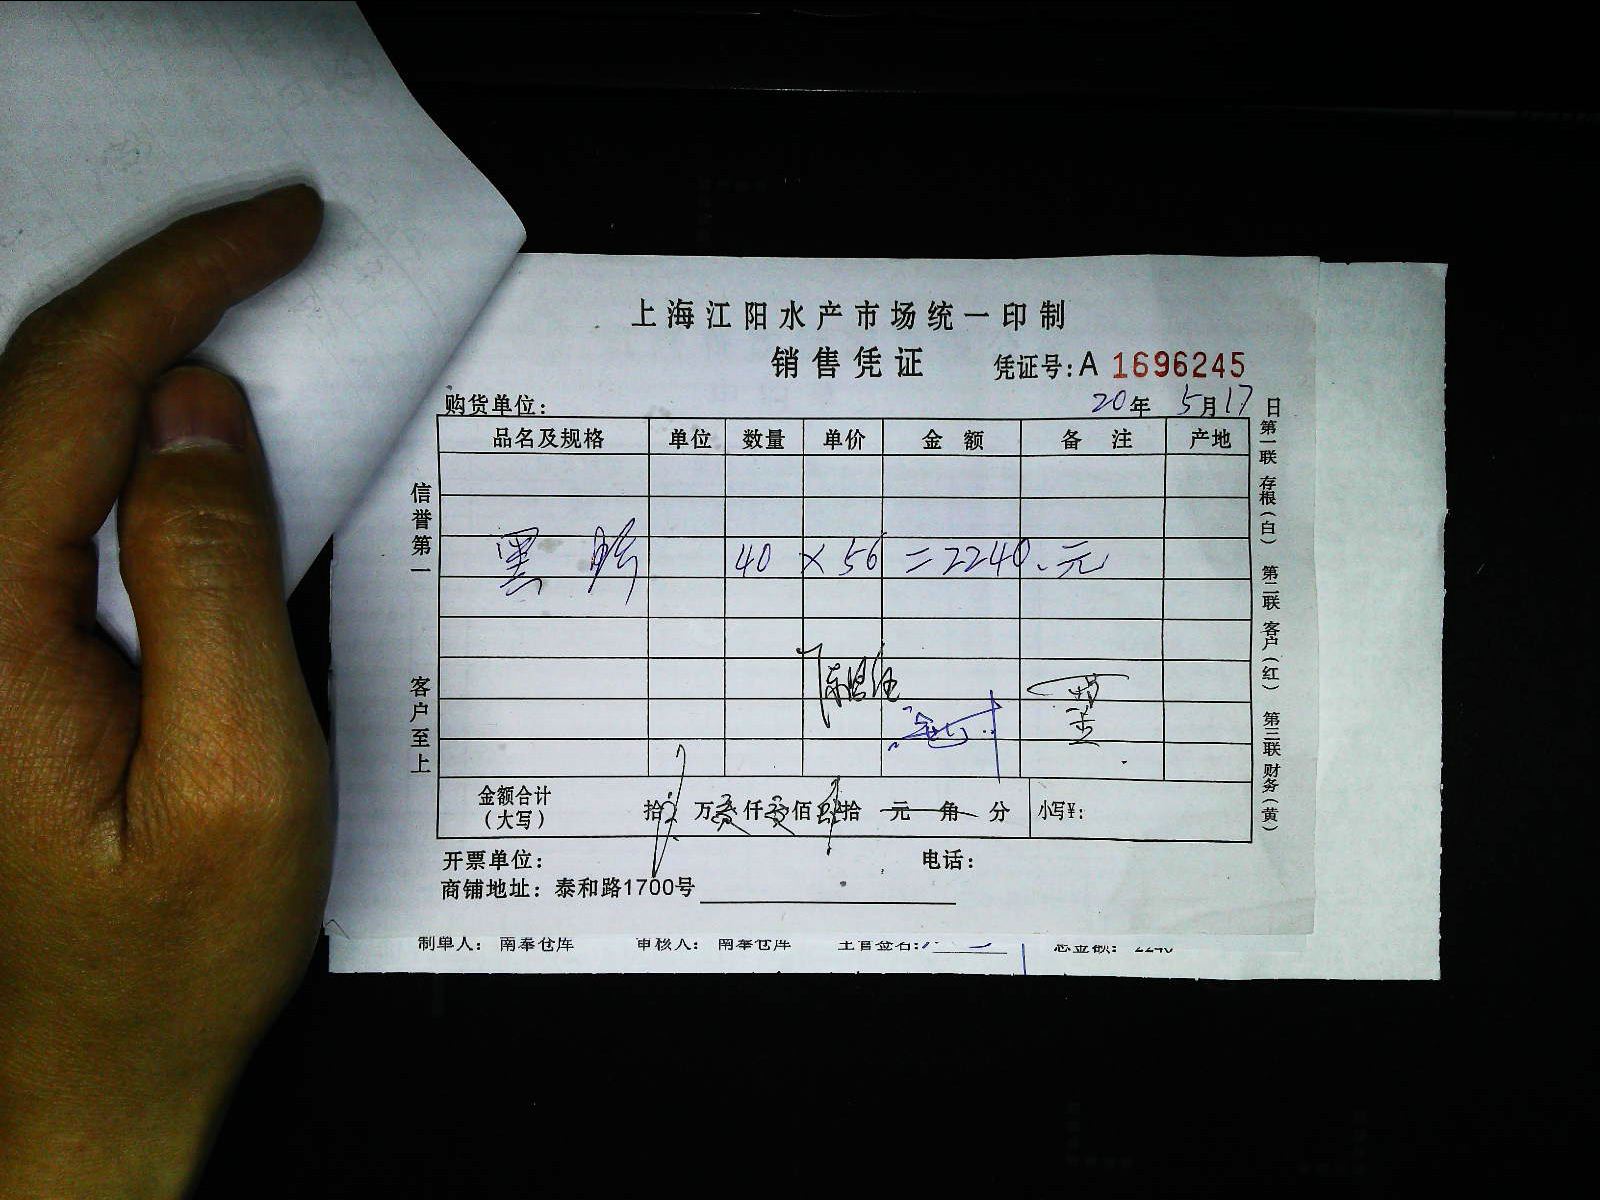 上海江阳水产市场统一印制
销售凭证
凭证号:A 1696245
购货单位:
20年 5月17日
品名及规格 单位 数量 单价 金额 备注 产地
黑 40 × 56 = 2240.元
信誉第一
客户至上
第一联 存根(白) 第二联 客户(红) 第三联 财务(黄)
金额合计
(大写)
拾 万 仟 佰 拾 元 角 分 小写¥:
开票单位: 电话:
商铺地址: 泰和路1700号
制单人: 南奉仓库 审核人: 南奉仓库 主管签名: 总金额: 2240